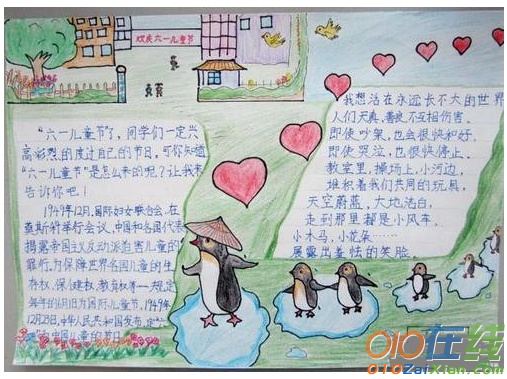 欢庆六一儿童节
"六一儿童节了，同学们一定兴
高彩烈的度过自己的节日，可你知道
"六一儿童节"是怎么来的呢？让我来
告诉你吧！
1949年12月，国际妇女联合会，在
莫斯科举行会议，中国和各国代表
揭露帝国主义反动派迫害儿童的
罪行。为保障世界各国儿童的生
存权、保健权、教育权等…规定
每年的6月1日为国际儿童节，1949年
12月23日，中华人民共和国发布，定
中国儿童的节日
我想活在永远长不大的世界
人们天真，善良不互相伤害。
即使吵架，也会很快和好，
即使哭泣，也很快停止。
教室里，操场上，小河边，
堆积着我们共同的玩具，
天空蔚蓝，大地洁白，
走到那里都是小风车，
小木马，小花朵……
展露出羞怯的笑脸。
010在线
010ZaiXian.com